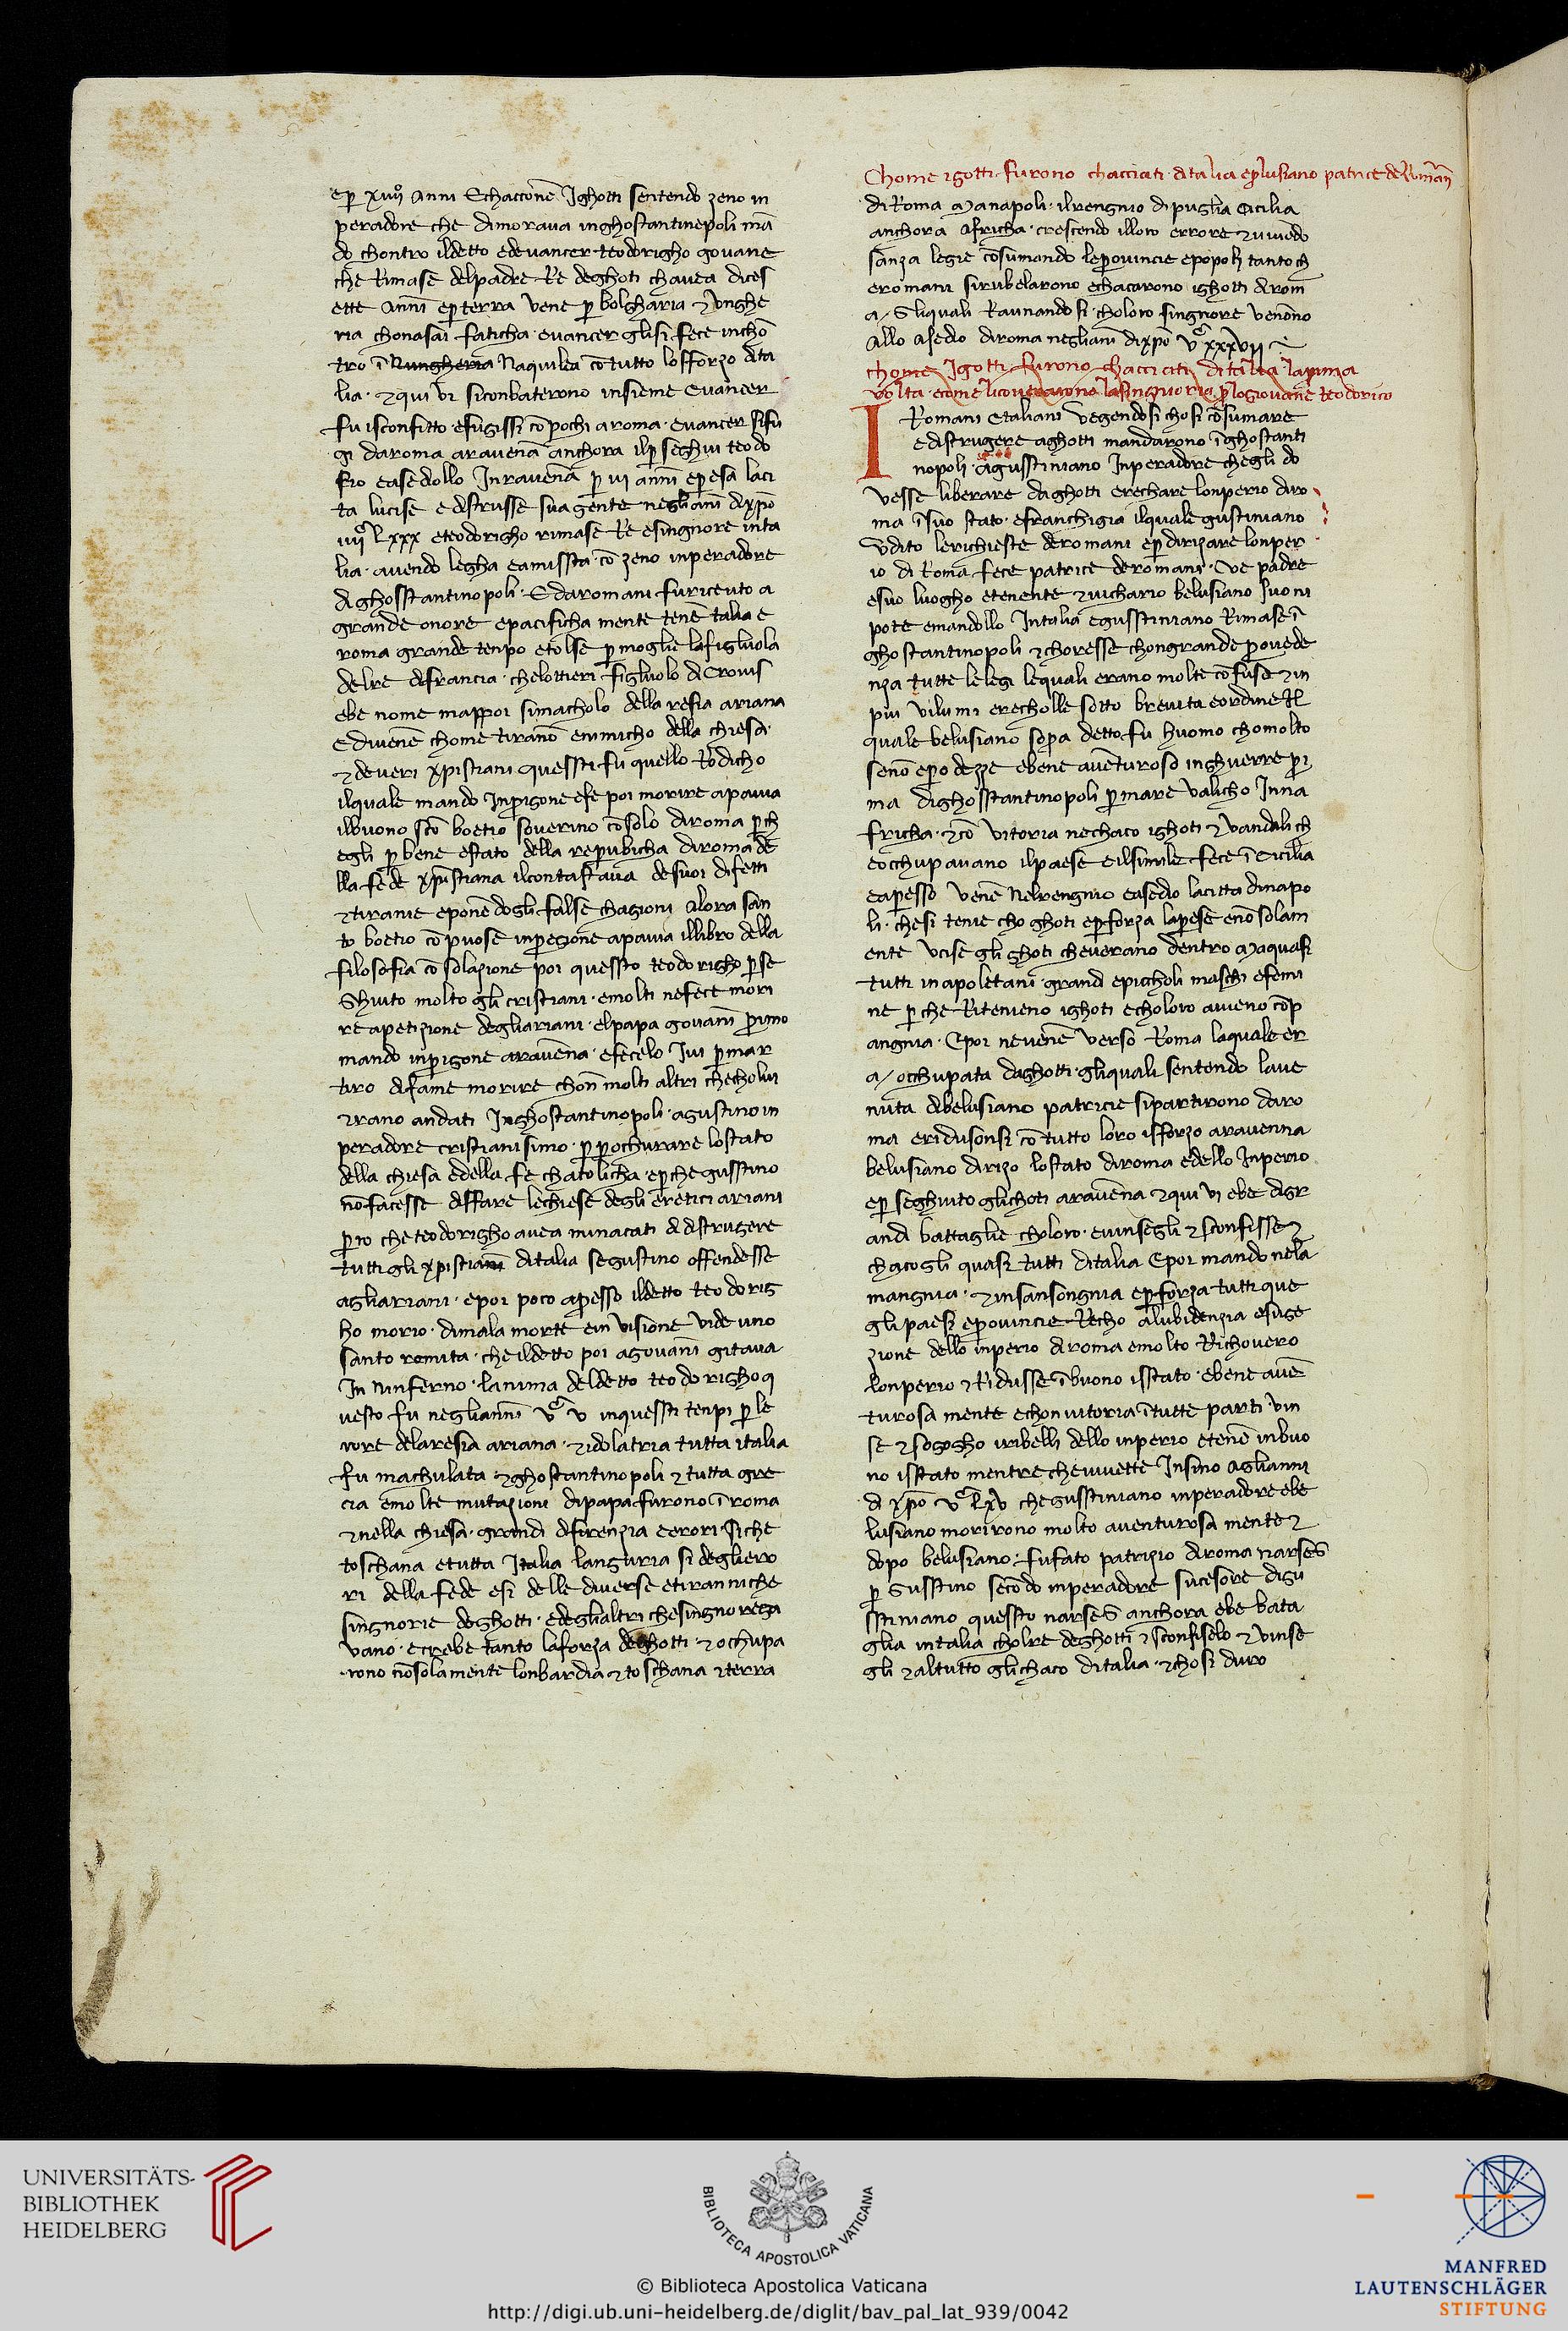 ep̱ xiiijº anni Echaccone Ighotti sentendo zeno in
peradore che dimoraua inghostantinepoli mā
do chontro ildetto edeuancer teodorigho gouane
che Rimase delpadre Re deghoti chauea dices
ette annī ep̱ terra vene p̱ bolgharia ⁊ vnghe
ria chonasai faticha · euancer glisi fece inchō
tro ī Nungheria Naquilea cō tutto lofforzo dita
lia · ⁊ qui vi siconbaterono insieme Euancer
fu isconfitto · efugissi cō pochi aroma · euancer sifu
gi daroma arauenā anchora ilp̱ seghui teodo
rio easediollo Inrauenā p̱ vi annī ep̱esa laci
ta lucise e distrusse sua gente neglianī dixpō
iiijº lxxx eteodorigho rimase Re esingnore inta
lia · auendo legha eamissta cō zeno inperadore
dighosstantinopoli · Edaromani furiceuto a
grande onore epacificha mente tenē talia e
roma grande tenpo etolse p̱ moglie lafigluola
delre difrancia · chelottieri figluolo di Crouis
ebe nome mappoi simacholo della resia ariana
e diuenē chome tirannō enimicho della chiesa ·
⁊ deueri xp̄istiani quessti fu quello Rodicho
ilquale mando Inprigone efe poi morire apauia
ilbuono scō boetio souerino cōsolo diroma p̱ ch
egli p̱ bene estato della repubicha diroma de
lla fede xp̄istiana ilcontastaua desuoi difetti
⁊ tiranie eponēdogli false chagioni alora san
to boetio cōpuose inp̱egione apauia illibro della
filosofia cōsolazione poi quessto teodorigho p̱se
ghuito molto gli cristiani · emolti nefece mori
re apetizione degliariani · elpapa gouanī p̱imo
mando inprigone arauēna · efecelo Iui p̱ mar
tiro difame morire chon molti altri checholui
erano andati Inghostantinopoli · agustino in
peradore cristianisimo · p̱ p̱ochurare lostato
della chiesa edella fe chatolicha · ep̱che gusstino
nō facesse disfare lechiese degli eretici ariani
p̱ro che teodorigho auea minacati di distrugere
tutti gli xp̄istianī ditalia segustino offendesse
agliariani · epoi poco ap̱esso ildetto teodorig
ho morio · dimala morte ein visione vide uno
santo romita · che ildetto poi agouanī gitaua
In Ninferno · lanima deldetto teodorigho q
uesto fu neglianni vº v inquessti tenpi p̱ le
rore delaresia ariana · ⁊ idolatria tutta italia
fu machulata · ⁊ ghostantinopoli ⁊ tutta gre
cia emolte mutazioni dipapa furono ī roma
⁊ nella chiesa · grandi difirenzia eerori · siche
toschana etutta Italia languria si degliero
ri della fede esi delle diuerse etiranniche
singnorie deghotti · edeglialtri chesingnorega
vano · ecrebe tanto laforza deghotti · ⁊ ochupa
rono nōsolamente lonbardia ⁊ toschana ⁊ terra
Chome igotti · furono chacciati · ditalia ep̱lusiano patrice deRoman̄
di Roma ⁊ anapoli · ilrengnio di puglia Cicilia
anchora Africha · crescendo illoro errore ⁊ viuedo
sanza legie cōsumando lep̱ouincie epopoli tantoch
eromani sirubelarono echacarono ighotti dirom
a / Gliquali Raunandosi · choloro singniore venōno
Allo Asedio diroma neglianī dixpō vº xxxvij
chome Igotti furono chacciati · ditalia · laprima
volta · ecome licouerarono lasingnioria p̱ logiouane teodorico
I Romani etaliani vegendosi chosi cōsumare
edistrugere aghotti mandarono īghostanti
nopoli · agusstiniano Inperadore chegli do
vesse liberare daghotti erechare lonperio diro
ma īsuo stato · efranchigia ilquale gustiniano
vdito lerichieste deromani ep̱ dirizare lonper
io di Roma fece patrice deromani · ve padre
esuo luogho etenente ⁊ vichario belusiano suo ni
pote emandollo Intalia egusstiniano Rimase ī
ghostantinopoli ⁊ choresse chongrande p̱ouede
nza tutte lelegi lequali erano molte cōfuse ⁊ in
piu vilumi erecholle sotto breuita eordine Il
quale belusiano sop̱a detto fu huomo chomolto
senō ep̱odezze ebene auenturoso inghuerre p̱i
ma dighosstantinopoli p̱ mare valicho Inna
fricha · ⁊ cō vitoria nechaco ighoti ⁊ vandali ch
eocchupauano ilpaese eilsimile fece ī Cicilia
eap̱esso venē Nelrengnio easedio lacitta dinapo
li · chesi tenie cho ghoti ep̱ forza lap̱ese enō solam
ente vcise gli ghoti cheuerano dentro ⁊ aquasi
tutti inapoletani grandi epiccholi maschi efemi
ne p̱che Riteneno ighoti echoloro aueno cōp
angnia · Epoi nevenē verso Roma laquale er
a / occhupata daghotti · gliquali sentendo laue
nuta dibelusiano patricie sipartirono daro
ma eridusonsi cō tutto loro isforzo arauenna
belusiano dirizo lostato diroma edello Inperio
ep̱seghuito glighoti arauēna ⁊ qui vi ebe digr
andi battaglie choloro · euinsegli ⁊ sconfisse ⁊
chacogli quasi tutti ditalia Epoi mando nela
mangnia · ⁊ insansongnia ep̱ forza tutti que
gli paesi ep̱ouincie Recho alubidenzia esuge
zione dello inperio diroma emolto Richouero
lonperio ⁊ Ridusse ī buono isstato · ebene auē
turosa mente echon vitoria ītutte parti · vin
se ⁊ sogogho iribelli dello inperio etenē inbuo
no isstato mentre cheviuette Insino aglianni
di xpō vº lxv chegusstiniano inperadore ebe
lusiano morirono molto auenturosa mente ⁊
dopo belusiano · fufato patrizio diroma narses
p̱ Gusstino secōdo inperadore sucesore digu
sstiniano quessto narses anchora ebe bata
glia intalia cholre deghotti ⁊ sconfiselo ⁊ vinse
gli ⁊ altutto glichaco ditalia · ⁊ chosi duro
UNIVERSITÄTS-
BIBLIOTHEK
HEIDELBERG
BIBLIOTECA APOSTOLICA VATICANA
© Biblioteca Apostolica Vaticana
http://digi.ub.uni-heidelberg.de/diglit/bav_pal_lat_939/0042
MANFRED
LAUTENSCHLÄGER
STIFTUNG